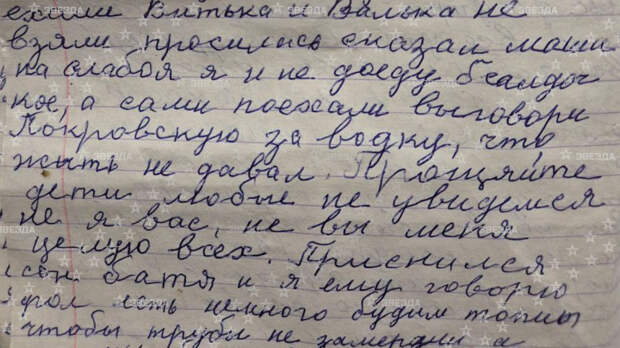 ехали Витька и Валька не
взяли просилась сказал маши
на слабоя я и не доеду
кое, а сами поехали выговори
Покровскую за водку, что
жыть не давал. Прощяйте
дети любые не увидемся
не я вас, не вы меня
целую всех. Приснился
сон батя и я ему говорю
есть немного будим топиы
чтобы трубы не замерзли а